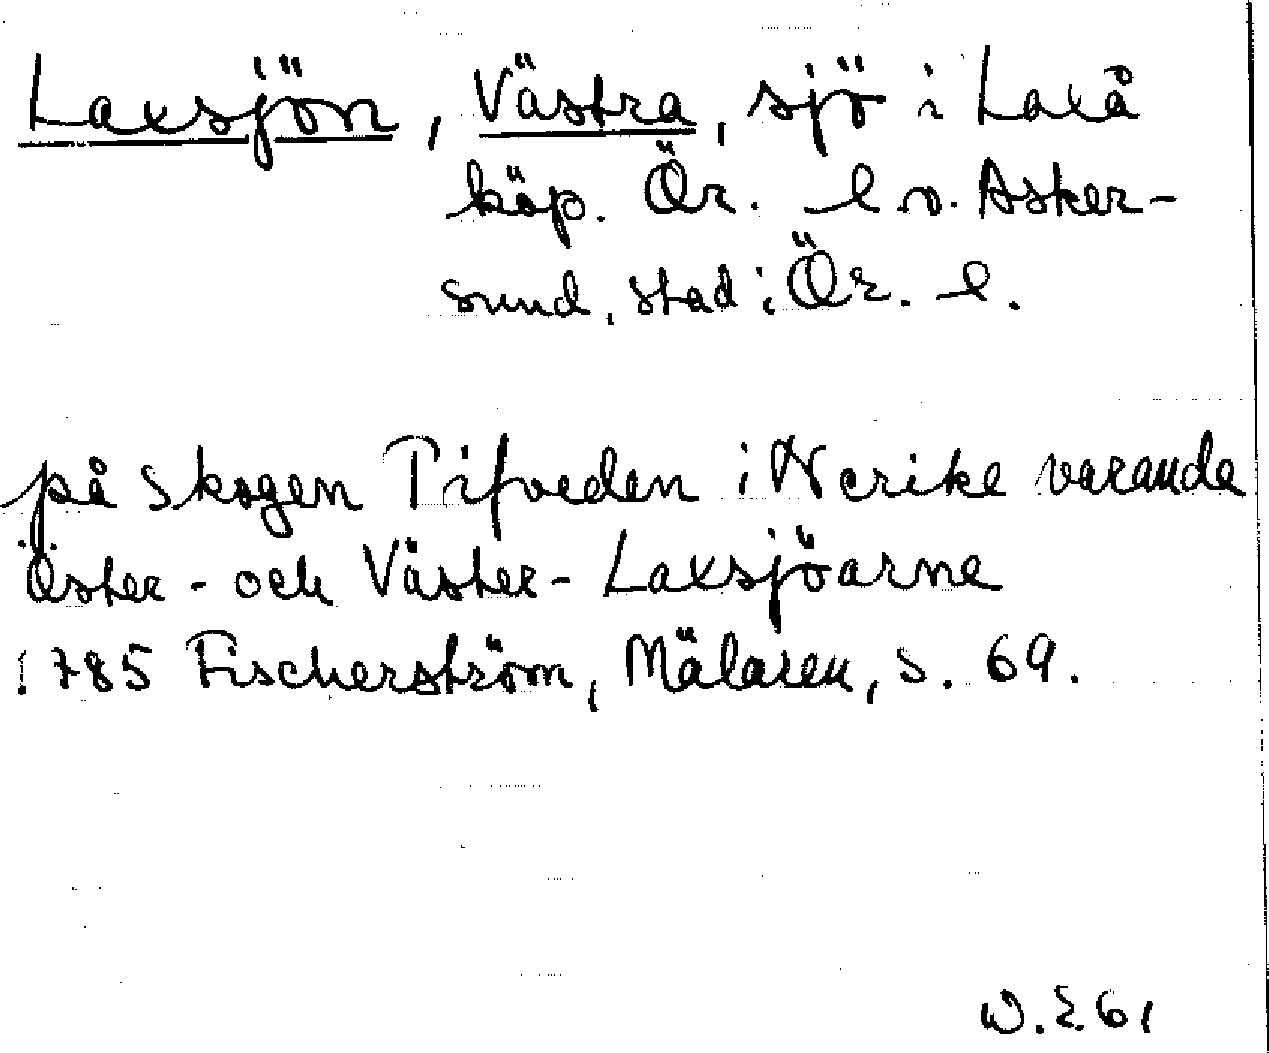 Laxsjön, Västra, sjö i Laxå
köp. Ör. l o. Asker-
sund, stad i Ör. l.
på skogen Tifveden i Nerike varande
Öster- och Väster- Laxsjöarne
1785 Fischerström, Mälaren, s. 69.
W.E.61